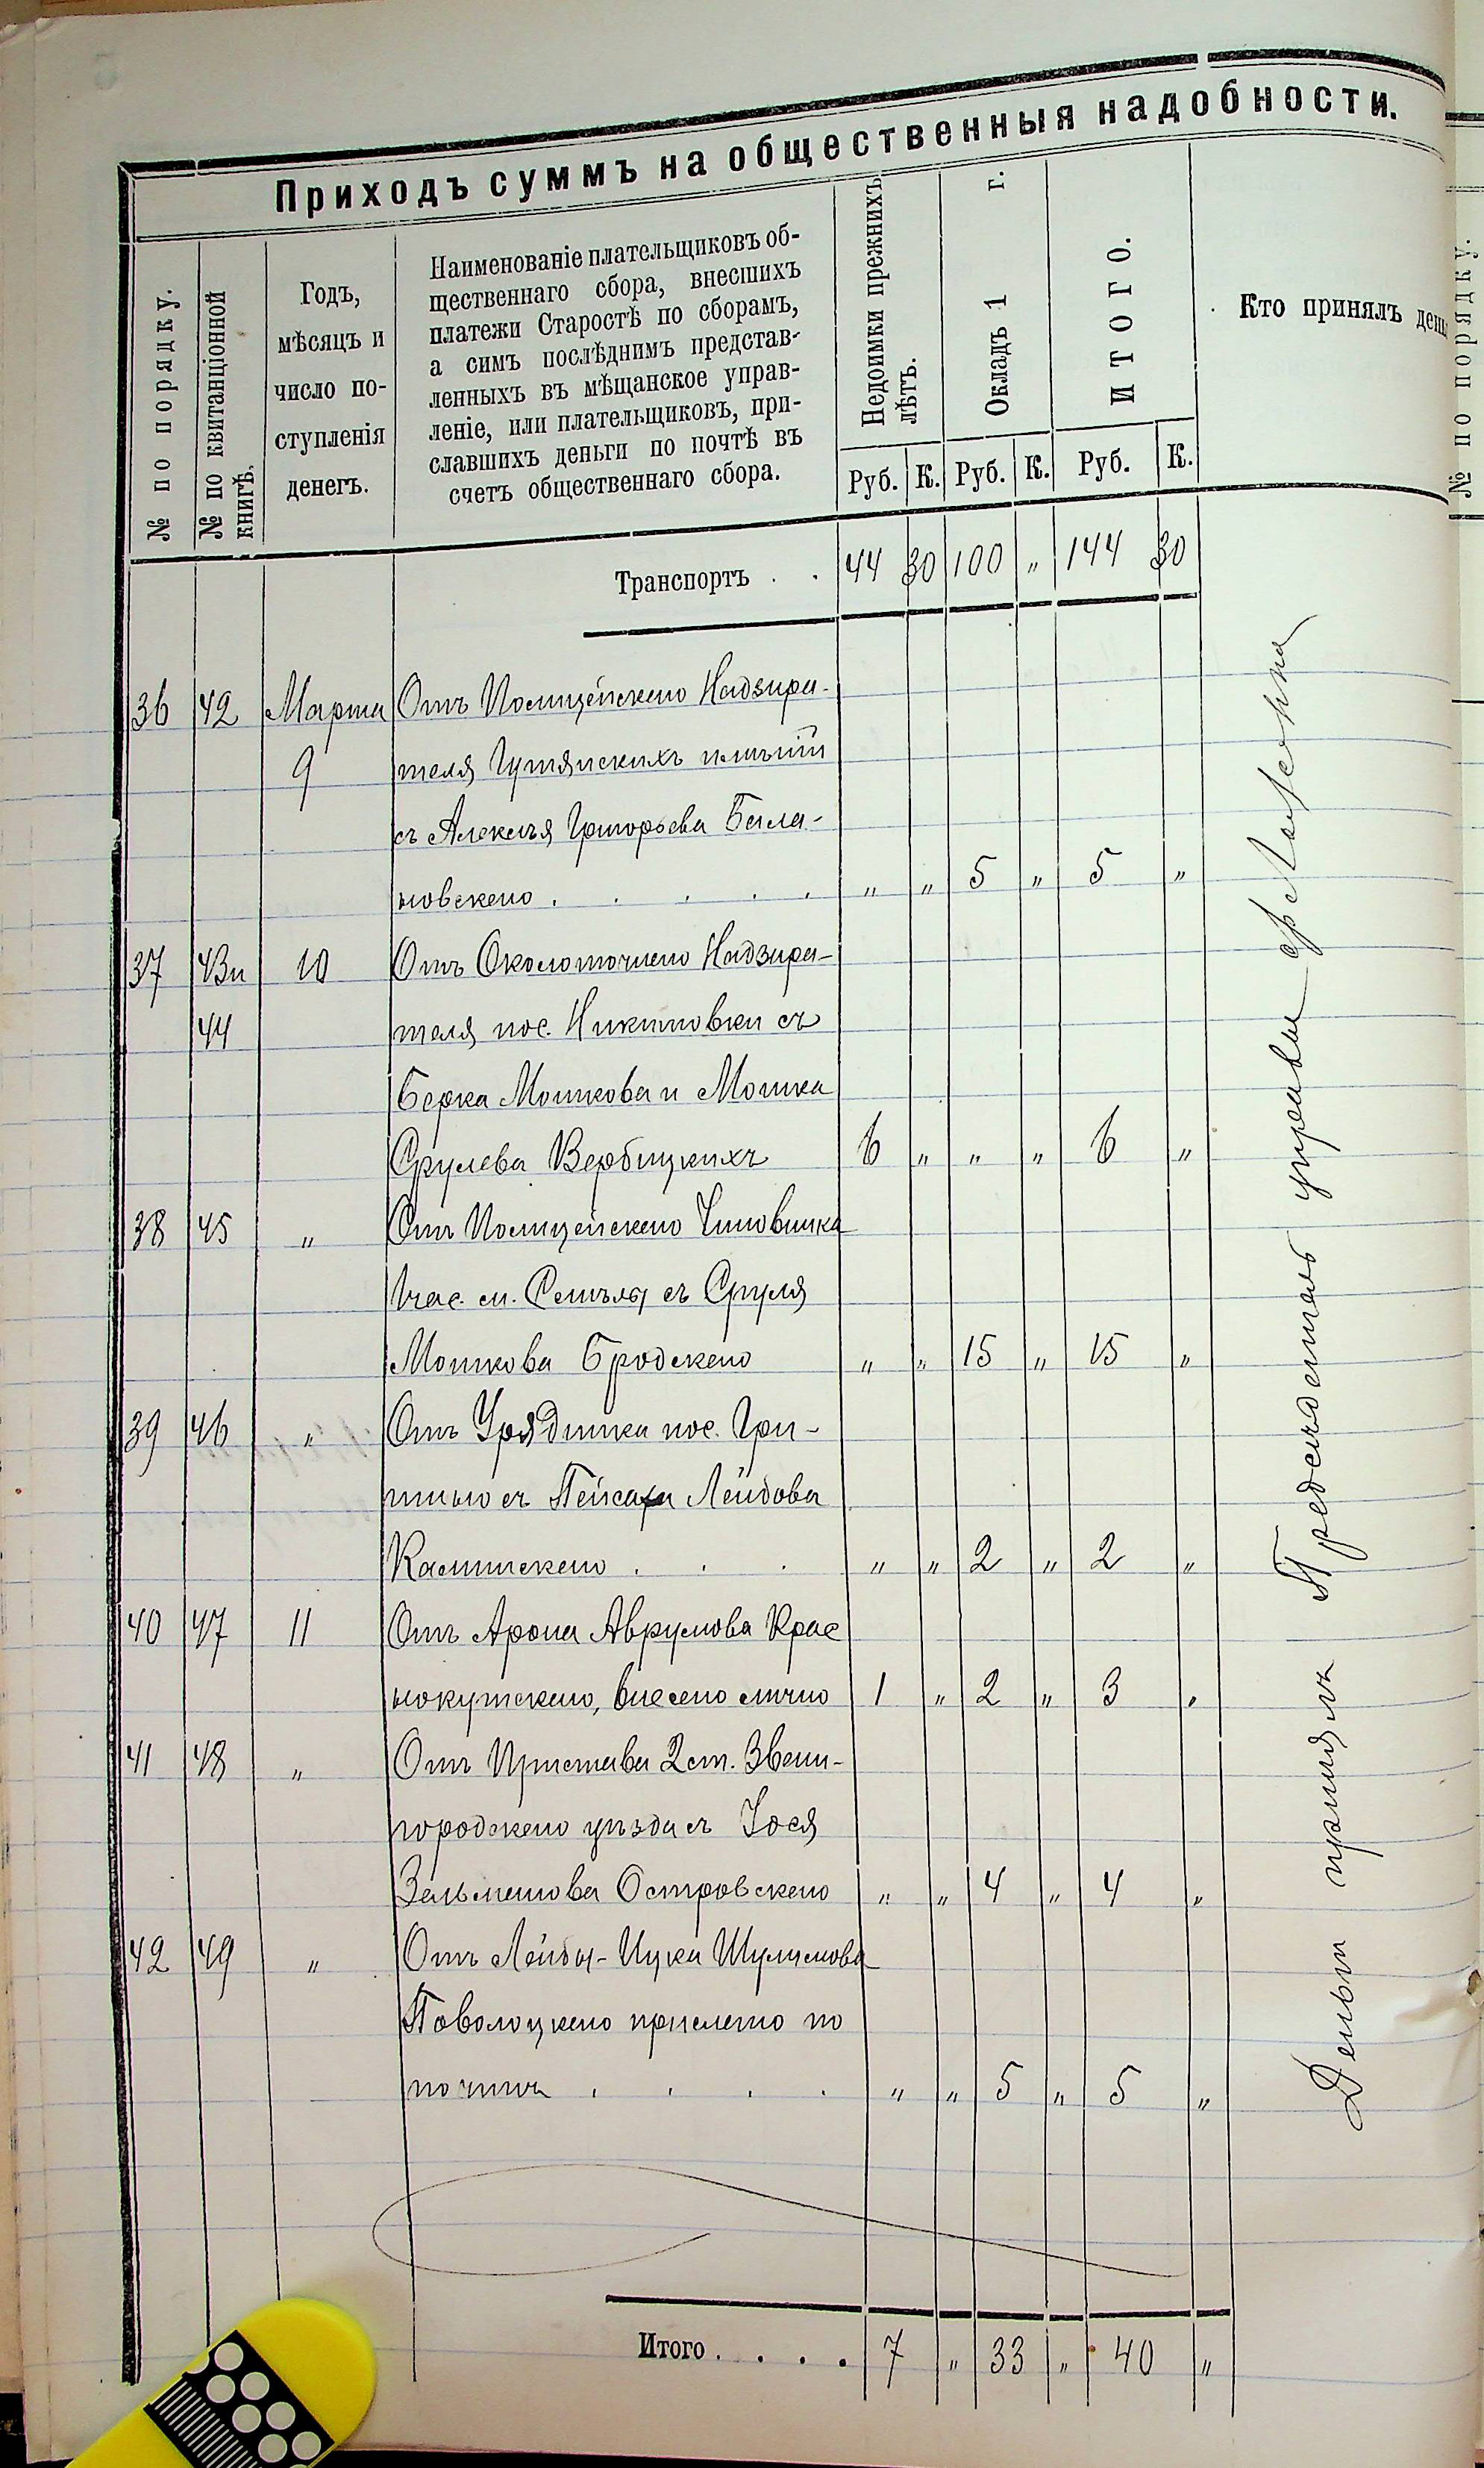 Приходъ суммъ на общественныя надобности.
№ по порядку.
№ по квитанціонной
книгѣ.
Годъ,
мѣсяцъ и
число по-
ступленія
денегъ.
Наименованіе плательщиковъ об-
щественнаго сбора, внесшихъ
платежи Старостѣ по сборамъ,
а симъ послѣднимъ представ-
ленныхъ въ мѣщанское управ-
леніе, или плательщиковъ, при-
славшихъ деньги по почтѣ въ
счетъ общественнаго сбора.
Недоимки прежнихъ
лѣтъ.
Окладъ 1 г.
ИТОГО.
Кто принялъ
Руб. К. Руб. К. Руб. К.
Транспортъ . . 44 30 100 " 144 30
36 42 Марта Отъ Полицейскаго Надзира-
9 теля
съ Алексѣя Григорьева Била-
новскаго . . . . . " " 5 " 5 "
37 43 и 10 Отъ Околоточнаго Надзира-
44 теля пос. Никитовки съ
Берка Мошкова и Мошка
Срулева Вербицкихъ 6 " " " 6 "
38 45 " Отъ Полицейскаго Чиновника
съ Сруля
Мошкова Бродскаго " " 15 " 15 "
39 46 " Отъ Урядника пос. Гри-
шино съ Пейсаха Лейбова
Калинскаго . . . " " 2 " 2 "
40 47 11 Отъ Арона Аврумова Крас
нокутскаго, внесено лично 1 " 2 " 3 "
41 48 " Отъ Пристава 2 ст. Звени-
городскаго уѣзда съ Іося
Зельманова Островскаго " " 4 " 4 "
42 49 " Отъ Лейбы-Ицка Шулимова
Поволоцкаго прислано по
почтѣ . . . . " " 5 " 5 "
Итого . . . . 7 " 33 " 40 "
Деньги принялъ Предсѣдатель управы
№ по порядку.